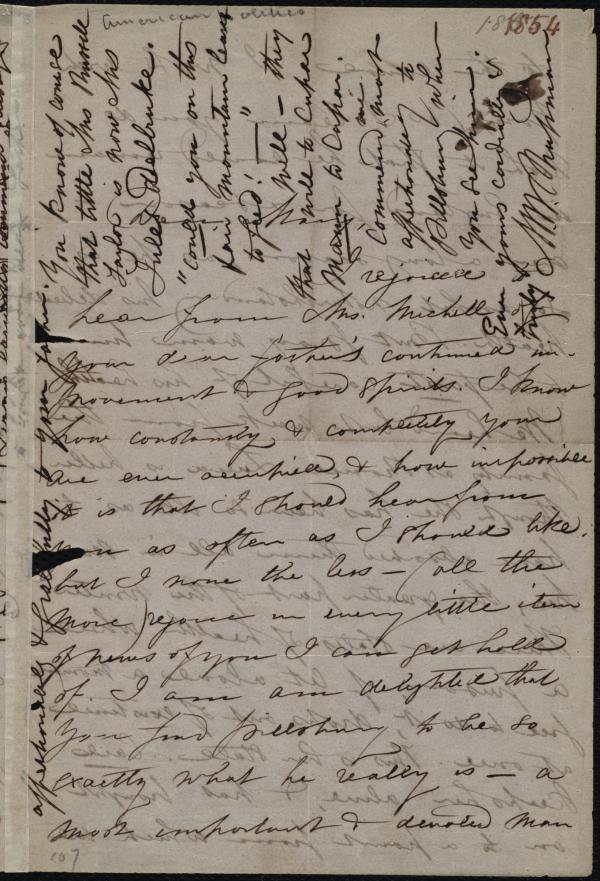 American Politics
1854
rejoiced
hear from Mrs. Michell of
your dear father's continued im-
provement & good spirits. I know
how constantly & completely you
are ever occupied, & how impossible
it is that I should hear from
you as often as I should like,
but I none the less – (all the
more) rejoice in every little item
of news of you I can get hold
of. I am am delighted that
you find Pillsbury to be so
exactly what he really is – a
most important & devoted man
107
affectionately & gratefully to your father.
You know of course
that little Mrs Russell
Taylor is now Mrs
Jules Delbruke.
"Could you on this
fair mountain leave
to feed!" —"
"Well – they
that will to Cupar
maun to Cupar.
Commend me most
affectionately to
Pillsbury when
you see him.
Ever yours cordially &
truly
M. W. Chapman